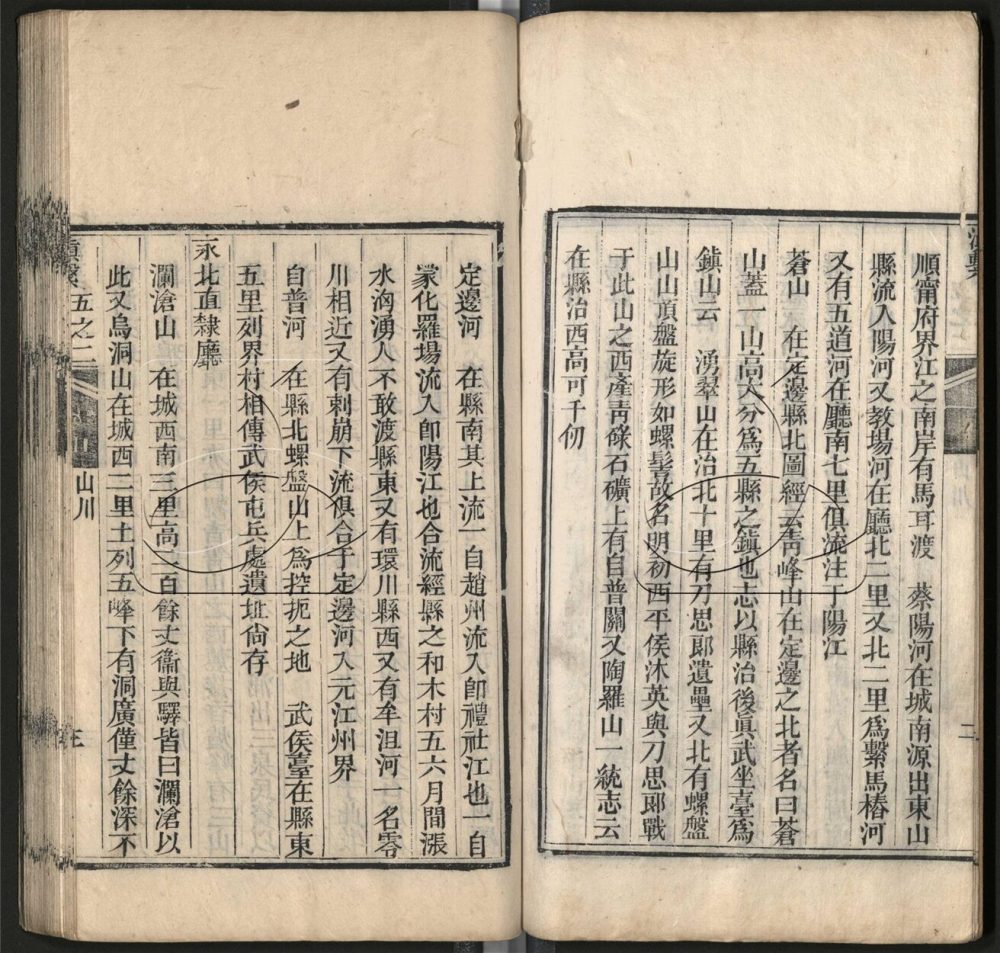 順甯府界江之南岸有馬耳渡　蔡陽河在城南源出東山
縣流入陽河又教場河在廳北二里又北二里爲繫馬樁河
又有五道河在廳南七里俱流注于陽江
蒼山　在定邊縣北圖經云靑峰山在定邊之北者名曰蒼
山蓋一山高大分爲五縣之鎭也志以縣治後眞武坐臺爲
鎭山云　湧翠山在治北十里有刀思郞遺壘又北有螺盤
山山頂盤旋形如螺髻故名明初西平侯沐英與刀思郞戰
于此山之西產靑碌石礦上有自普關又陶羅山一統志云
在縣治西高可千仞
二
定邊河　在縣南其上流一自趙州流入卽禮社江也一自
蒙化羅場流入卽陽江也合流經縣之和木村五六月間漲
水洶湧人不敢渡縣東又有環川縣西又有牟沮河一名零
川相近又有剌崩下流俱合于定邊河入元江州界
自普河　在縣北螺盤山上爲控扼之地　武侯臺在縣東
五里列界村相傳武侯屯兵處遺址尙存
永北直隸廳
瀾滄山　在城西南三里高二百餘丈衞與驛皆曰瀾滄以
此又烏洞山在城西二里土列五峰下有洞廣僅丈餘深不
滇繫 五之二 山川 三